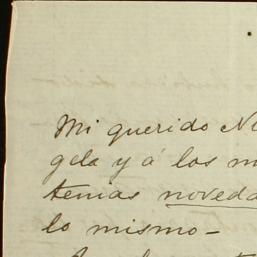 Mi querido Ni
gela y á los m
tenias noveda
lo mismo–